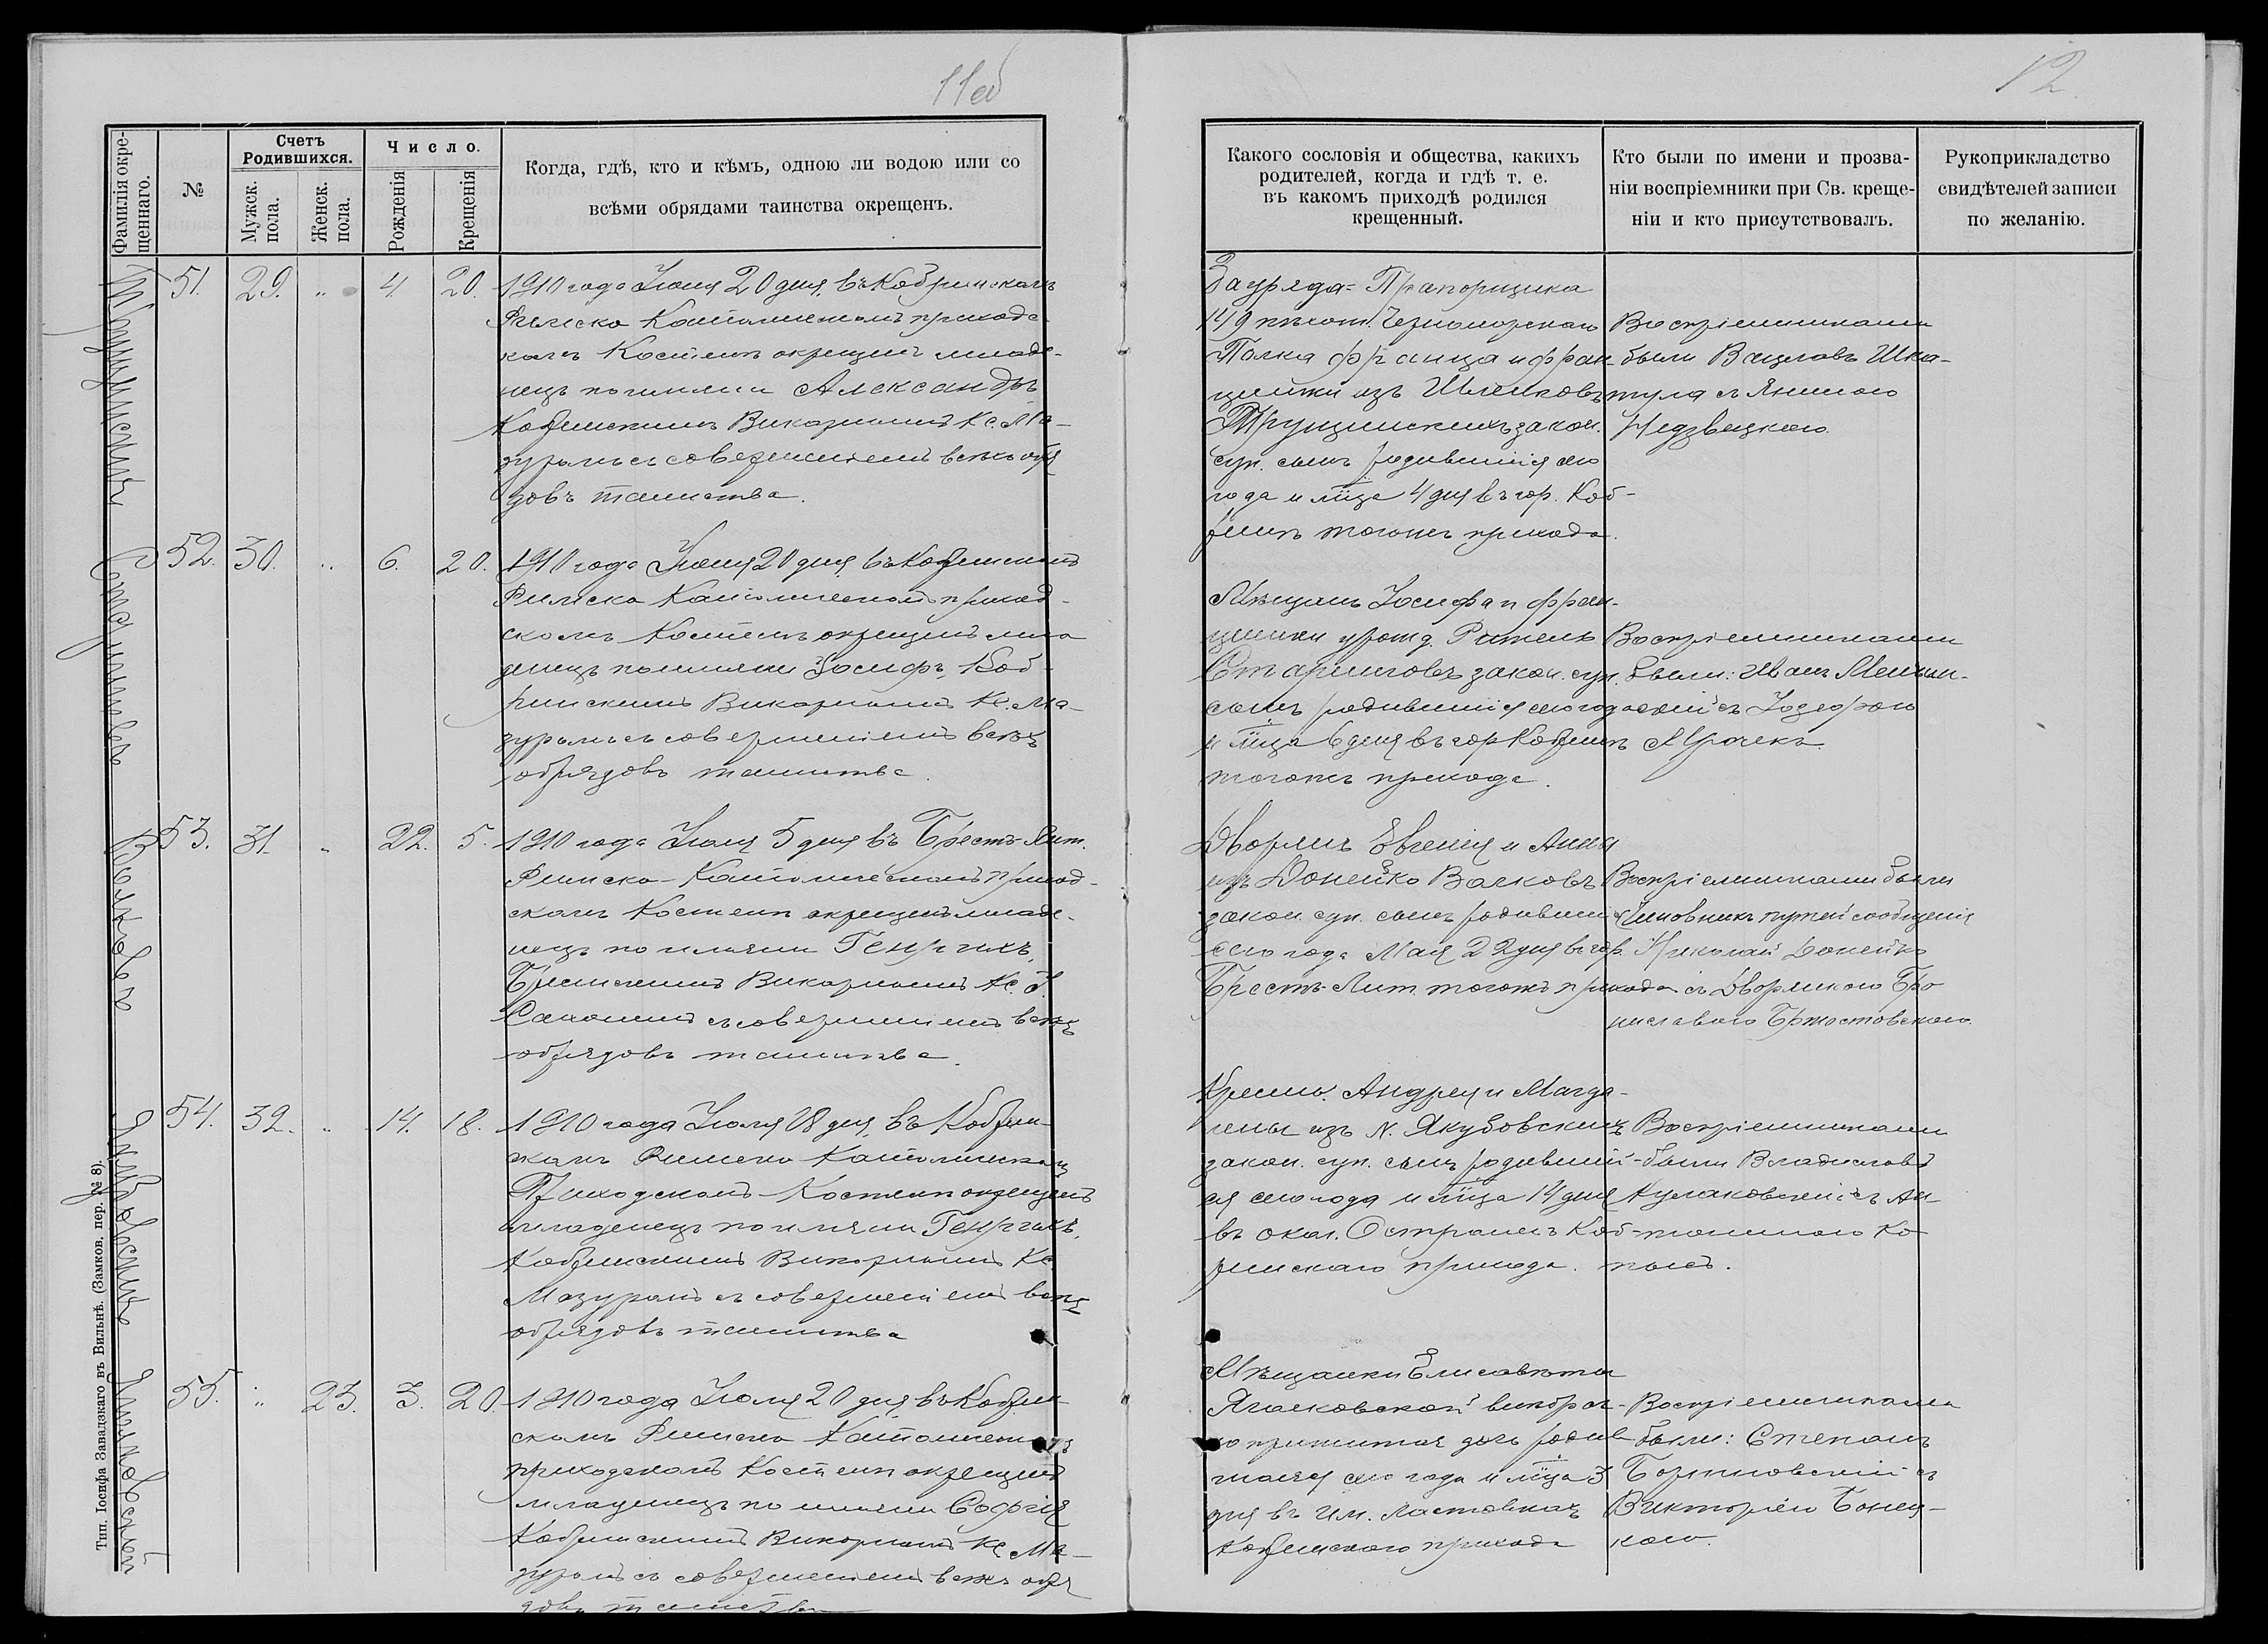 11об
Фамилія окре-
щеннаго.
№
Счетъ
Родившихся.
Мужск.
пола.
Женск.
пола.
Число.
Рожденія
Крещенія
Когда, гдѣ, кто и кѣмъ, одною ли водою или со
всѣми обрядами таинства окрещенъ.
51. 29. „ 4. 20.
1910 года Іюня 20 дня въ Кобринскомъ
Римско Католическомъ приход-
скомъ Костелѣ окрещенъ младе-
нецъ по имени Александръ
Кобринскимъ Викаріемъ Кс. Ма-
зуромъ съ совершеніемъ всѣхъ обря
довъ таинства.
52. 30. „ 6. 20.
1910 года Іюня 20 дня въ Кобринскомъ
Римско Католическомъ приход-
скомъ Костелѣ окрещенъ мла
денецъ по имени Іосифъ, Коб-
ринскимъ Викаріемъ Кс. Ма-
зуромъ съ совершеніемъ всѣхъ
обрядовъ таинства.
Волковъ
53. 31. „ 22. 5.
1910 года Іюля 5 дня въ Брестъ-Лит.
Римско-Католическомъ приход-
скомъ Костелѣ окрещенъ младе-
нецъ по имени Генрихъ,
Брестскимъ Викаріемъ Кс. І.
съ совершеніемъ всѣхъ
обрядовъ таинства.
Якубовскій
54. 32. „ 14. 18.
1910 года Іюля 18 дня въ Кобрин-
скомъ Римско Католическомъ
Приходскомъ Костелѣ окрещенъ
младенецъ по имени Генрихъ,
Кобринскимъ Викаріемъ Кс.
Мазуромъ съ совершеніемъ всѣхъ
обрядовъ таинства
55. „ 23. 3. 20.
1910 года Іюля 20 дня въ Кобрин-
скомъ Римско Католическомъ
приходскомъ Костелѣ окрещенъ
младенецъ по имени Софія
Кобринскимъ Викаріемъ Кс. Ма-
зуромъ съ совершеніемъ всѣхъ обря
довъ таинства
Тип. Іосифа Завадзкаго въ Вильнѣ. (Замков. пер. № 8).
12
Какого сословія и общества, какихъ
родителей, когда и гдѣ т. е.
въ какомъ приходѣ родился
крещенный.
Кто были по имени и прозва-
ніи воспріемники при Св. креще-
ніи и кто присутствовалъ.
Рукоприкладство
свидѣтелей записи
по желанію.
Зауряда-Прапорщика
149 пѣхот. Черноморскаго
Полка Франца и Фран-
цишки изъ
закон.
суп. сынъ родившійся сего
года и м-ца 4 дня въ гор. Коб-
ринѣ тогожъ прихода.
Воспріемниками
были Вацлавъ Шка-
тула съ Яниною
Недзвецкою.
Мѣщанъ Іосифа и Фран-
цишки урожд.
закон. суп.
сынъ родившійся сего года
и м-ца 6 дня въ гор Кобринѣ
тогожъ прихода.
Воспріемниками
были: Иванъ
съ Іозефою
Мрочекъ.
Дворянъ Евгенія и Анны
изъ Донейко Волковъ
закон. суп. сынъ родившійся
сего года Мая 22 дня въ гор.
Брестъ-Лит. тогожъ прихода
Воспріемниками были
Чиновникъ путей сообщенія
Николай Донейко
съ Дворянкою Бро
ниславою Бржостовскою.
Крест. Андрея и Магда-
лены изъ N. Якубовскихъ
закон. суп. сынъ родивший-
ся сего года и м-ца 14 дня
въ окол. Коб-
ринскаго прихода.
Воспріемниками
были Владиславъ
Кулаковскій съ Ан-
тониною Ко
Мѣщанки Елисаветы
внѣбрач-
но прижитая дочь родив
шаяся сего года и м-ца 3
дня въ им. Ластовкахъ
Кобринскаго прихода
Воспріемниками
были: Степанъ
съ
Викторіею